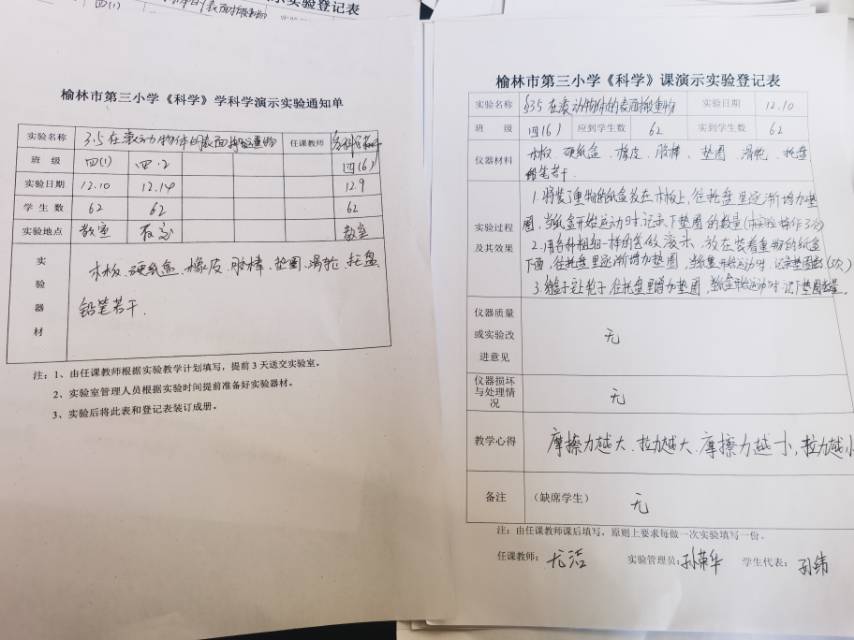 实验登记表
榆林市第三小学《科学》学科学演示实验通知单
实验名称 3.5在滚动物体的表面搬重物 任课教师
班 级 四(1) 四.2 四(6)
实验日期 12.10 12.14 12.9
学生数 62 62 62
实验地点 教室 教室 教室
实验器材 木板、硬纸盒、橡皮、胶棒、垫圈、滑轮、托盘
铅笔若干.
注：1、由任课教师根据实验教学计划填写，提前3天送交实验室。
2、实验室管理人员根据实验时间提前准备好实验器材。
3、实验后将此表和登记表装订成册。
榆林市第三小学《科学》课演示实验登记表
实验名称 §3.5在滚动物体的表面搬重物 实验日期 12.10
班 级 四(6) 应到学生数 62 实到学生数 62
仪器材料 木板、硬纸盒、橡皮、胶棒、垫圈、滑轮、托盘
铅笔若干.
实验过程及其效果
1.将装了重物的纸盒放在木板上,往托盘里逐渐增加垫
圈,当纸盒开始运动时,记录下垫圈的数量
2.用各种粗细一样的 放在装着重物的纸盒
下面,往托盘里逐渐增加垫圈,
3. 往托盘里增加垫圈, 记下垫圈数量.
仪器质量或实验改进意见 无
仪器损坏与处理情况 无
教学心得 摩擦力越大、拉力越大、摩擦力越小,拉力越小
备注 （缺席学生） 无
注：由任课教师课后填写，原则上要求每做一次实验填写一份。
任课教师： 尤洁 实验管理员： 孙荣华 学生代表：